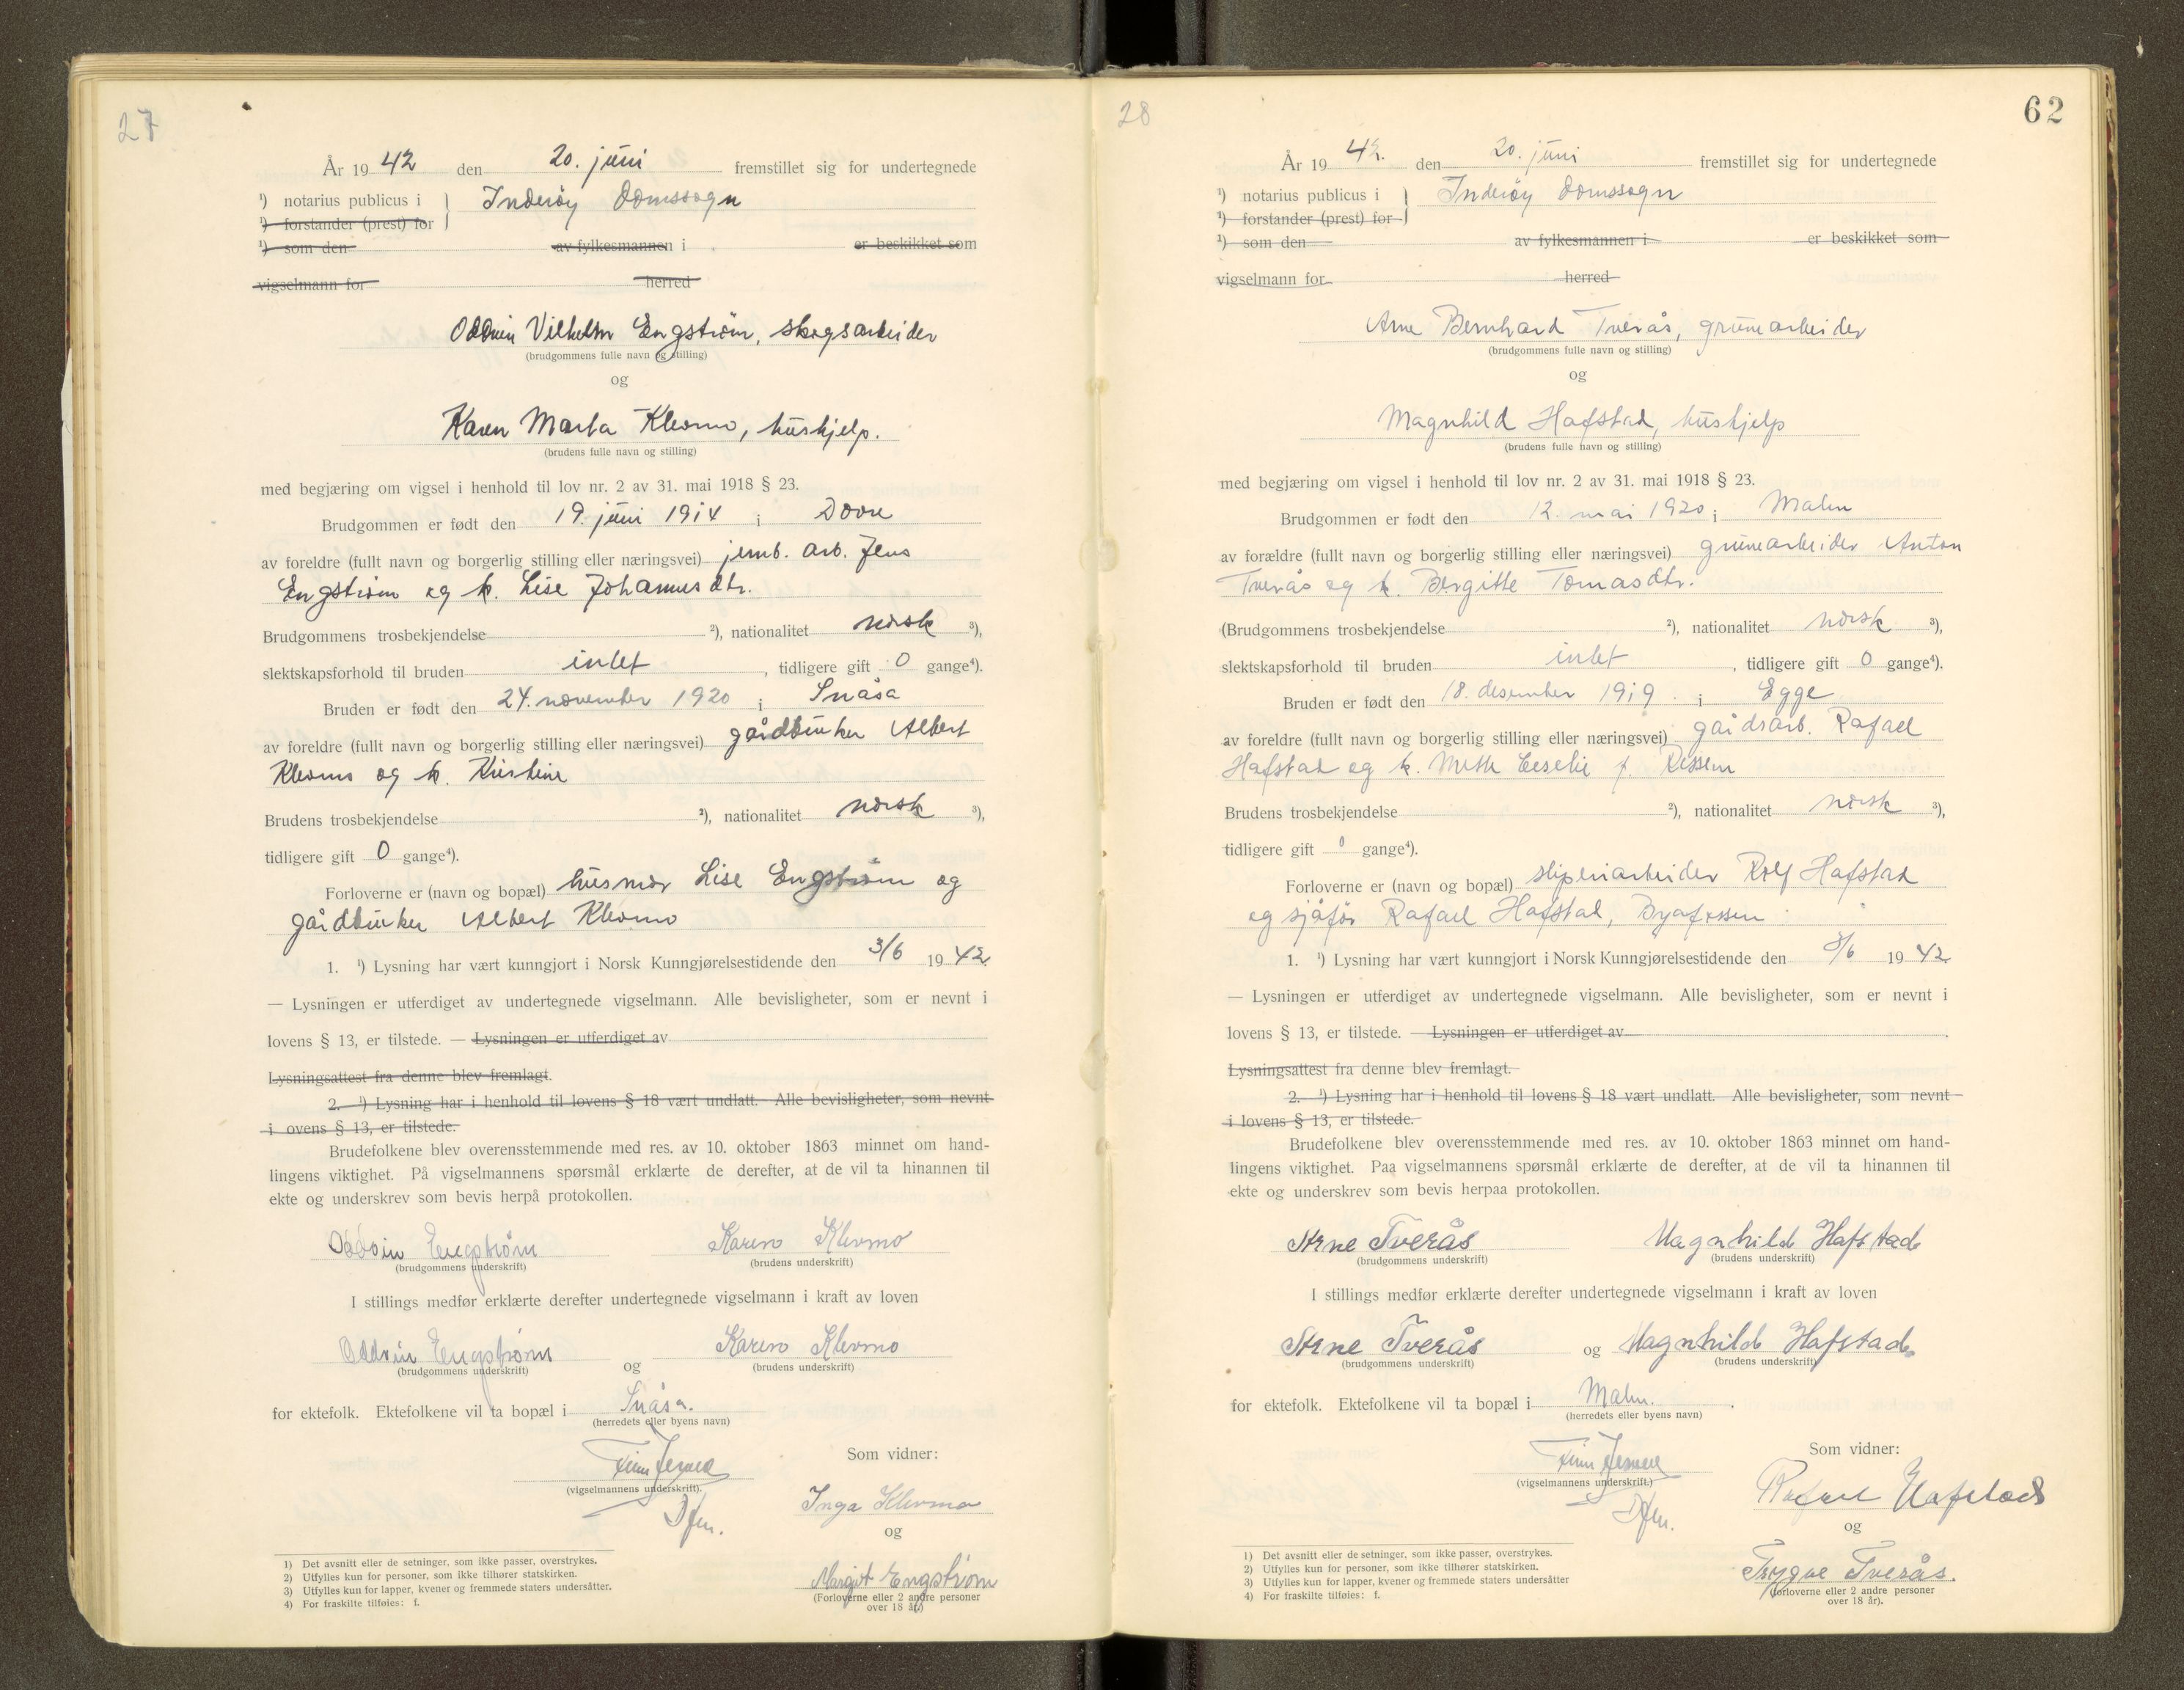 27
År 19 42 den 20. juni fremstillet sig for undertegnede
¹) notarius publicus i } Inderøy domssogn
¹) forstander (prest) for
¹) som den av fylkesmannen i er beskikket som
vigselmann for herred
Oddvin Vilhelm Engstrøm, skogsarbeider
(brudgommens fulle navn og stilling)
og
Karen Marta Klevmo, hushjelp.
(brudens fulle navn og stilling)
med begjæring om vigsel i henhold til lov nr. 2 av 31. mai 1918 § 23.
Brudgommen er født den 19. juni 1914 i Dovre
av foreldre (fullt navn og borgerlig stilling eller næringsvei) jernb. arb. Jens
Engstrøm og h. Lise Johannesdtr.
Brudgommens trosbekjendelse ²), nationalitet norsk ³),
slektskapsforhold til bruden intet, tidligere gift 0 gange⁴).
Bruden er født den 24. november 1920 i Snåsa
av foreldre (fullt navn og borgerlig stilling eller næringsvei) gårdbruker Albert
Klevmo og h. Kristine
Brudens trosbekjendelse ²), nationalitet norsk ³),
tidligere gift 0 gange⁴).
Forloverne er (navn og bopæl) husmor Lise Engstrøm og
gårdbruker Albert Klevmo
1. ¹) Lysning har vært kunngjort i Norsk Kunngjørelsestidende den 3/6 19 42.
— Lysningen er utferdiget av undertegnede vigselmann. Alle bevisligheter, som er nevnt i
lovens § 13, er tilstede. — Lysningen er utferdiget av
Lysningsattest fra denne blev fremlagt.
2. ¹) Lysning har i henhold til lovens § 18 vært undlatt. Alle bevisligheter, som nevnt
i ovens § 13, er tilstede.
Brudefolkene blev overensstemmende med res. av 10. oktober 1863 minnet om hand-
lingens viktighet. På vigselmannens spørsmål erklærte de derefter, at de vil ta hinannen til
ekte og underskrev som bevis herpå protokollen.
Oddvin Engstrøm Karen Klevmo
(brudgommens underskrift) (brudens underskrift)
I stillings medfør erklærte derefter undertegnede vigselmann i kraft av loven
Oddvin Engstrøm og Karen Klevmo
(brudgommens underskrift) (brudens underskrift)
for ektefolk. Ektefolkene vil ta bopæl i Snåsa.
(herredets eller byens navn)
Som vidner:
Finn
(vigselmannens underskrift).
Inga Klevmo
og
Margit Engstrøm
(Forloverne eller 2 andre personer
over 18 år.)
1) Det avsnitt eller de setninger, som ikke passer, overstrykes.
2) Utfylles kun for personer, som ikke tilhører statskirken.
3) Utfylles kun for lapper, kvener og fremmede staters undersåtter.
4) For fraskilte tilføies: f.
28
62
År 19 42. den 20. juni fremstillet sig for undertegnede
¹) notarius publicus i } Inderøy domssogn
¹) forstander (prest) for
¹) som den av fylkesmannen i er beskikket som
vigselmann for herred
Arne Bernhard Tverås, gruvearbeider
(brudgommens fulle navn og stilling)
og
Magnhild Hafstad, hushjelp
(brudens fulle navn og stilling)
med begjæring om vigsel i henhold til lov nr. 2 av 31. mai 1918 § 23.
Brudgommen er født den 12. mai 1920 i Malm
av forældre (fullt navn og borgerlig stilling eller næringsvei) gruvearbeider Anton
Tverås og h. Bergitte Tomasdtr.
(Brudgommens trosbekjendelse ²), nationalitet norsk ³),
slektskapsforhold til bruden intet, tidligere gift 0 gange⁴).
Bruden er født den 18. desember 1919 i Egge
av foreldre (fullt navn og borgerlig stilling eller næringsvei) gårdsarb. Rafael
Hafstad og h. f. Rissem
Brudens trosbekjendelse ²), nationalitet norsk ³),
tidligere gift 0 gange⁴).
Forloverne er (navn og bopæl) sliperiarbeider Rolf Hafstad
og sjåfør Rafael Hafstad, Byafossen
1. ¹) Lysning har vært kunngjort i Norsk Kunngjørelsestidende den 3/6 19 42
— Lysningen er utferdiget av undertegnede vigselmann. Alle bevisligheter, som er nevnt i
lovens § 13, er tilstede. — Lysningen er utferdiget av .
Lysningsattest fra denne blev fremlagt.
2. ¹) Lysning har i henhold til lovens § 18 vært undlatt. Alle bevisligheter, som nevnt
i lovens § 13, er tilstede.
Brudefolkene blev overensstemmende med res. av 10. oktober 1863 minnet om hand-
lingens viktighet. Paa vigselmannens spørsmål erklærte de derefter, at de vil ta hinannen til
ekte og underskrev som bevis herpaa protokollen.
Arne Tverås Magnhild Hafstad
(brudgommens underskrift) (brudens underskrift)
I stillings medfør erklærte derefter undertegnede vigselmann i kraft av loven
Arne Tverås og Magnhild Hafstad
(brudgommens underskrift) (brudens underskrift)
for ektefolk. Ektefolkene vil ta bopæl i Malm.
(herredets eller byens navn)
Som vidner:
Finn
(vigselmannens underskrift.)
Rafael Hafstad
og
Trygve Tverås.
(forloverne eller 2 andre personer
over 18 år).
1) Det avsnitt eller de setninger, som ikke passer, overstrykes.
2) Utfylles kun for personer, som ikke tilhører statskirken.
3) Utfylles kun for lapper, kvener og fremmede staters undersåtter
4) For fraskilte tilføies: f.